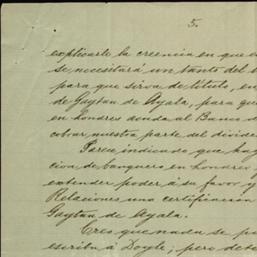 5.
explicarle la creencia en que e
se necesitará un tanto del
para que sirva de título, en
de Gaytan de Ayala, para qu
en londres donda al Banco d
cobrar, nuestra parte del divide
Parece indicado que hay
cion de banquero en londres,
extender poder á su favor y
Relaciones una certificacion
Gaytan de Ayala.
Creo que nada se p
escriba á Doyle; pero de